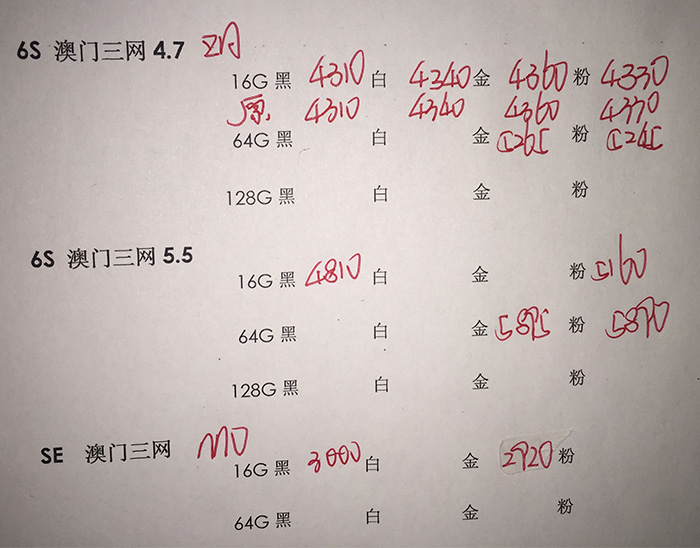 6S 澳门三网 4.7 ZA
16G 黑 4310 白 4340 金 4360 粉 4330
原 4310 4340 4360 4330
64G 黑 白 金 5265 粉 5245
128G 黑 白 金 粉
6S 澳门三网 5.5
16G 黑 4810 白 金 粉 5160
64G 黑 白 金 5895 粉 5890
128G 黑 白 金 粉
SE 澳门三网
16G 黑 3000 白 金 2920 粉
64G 黑 白 金 粉